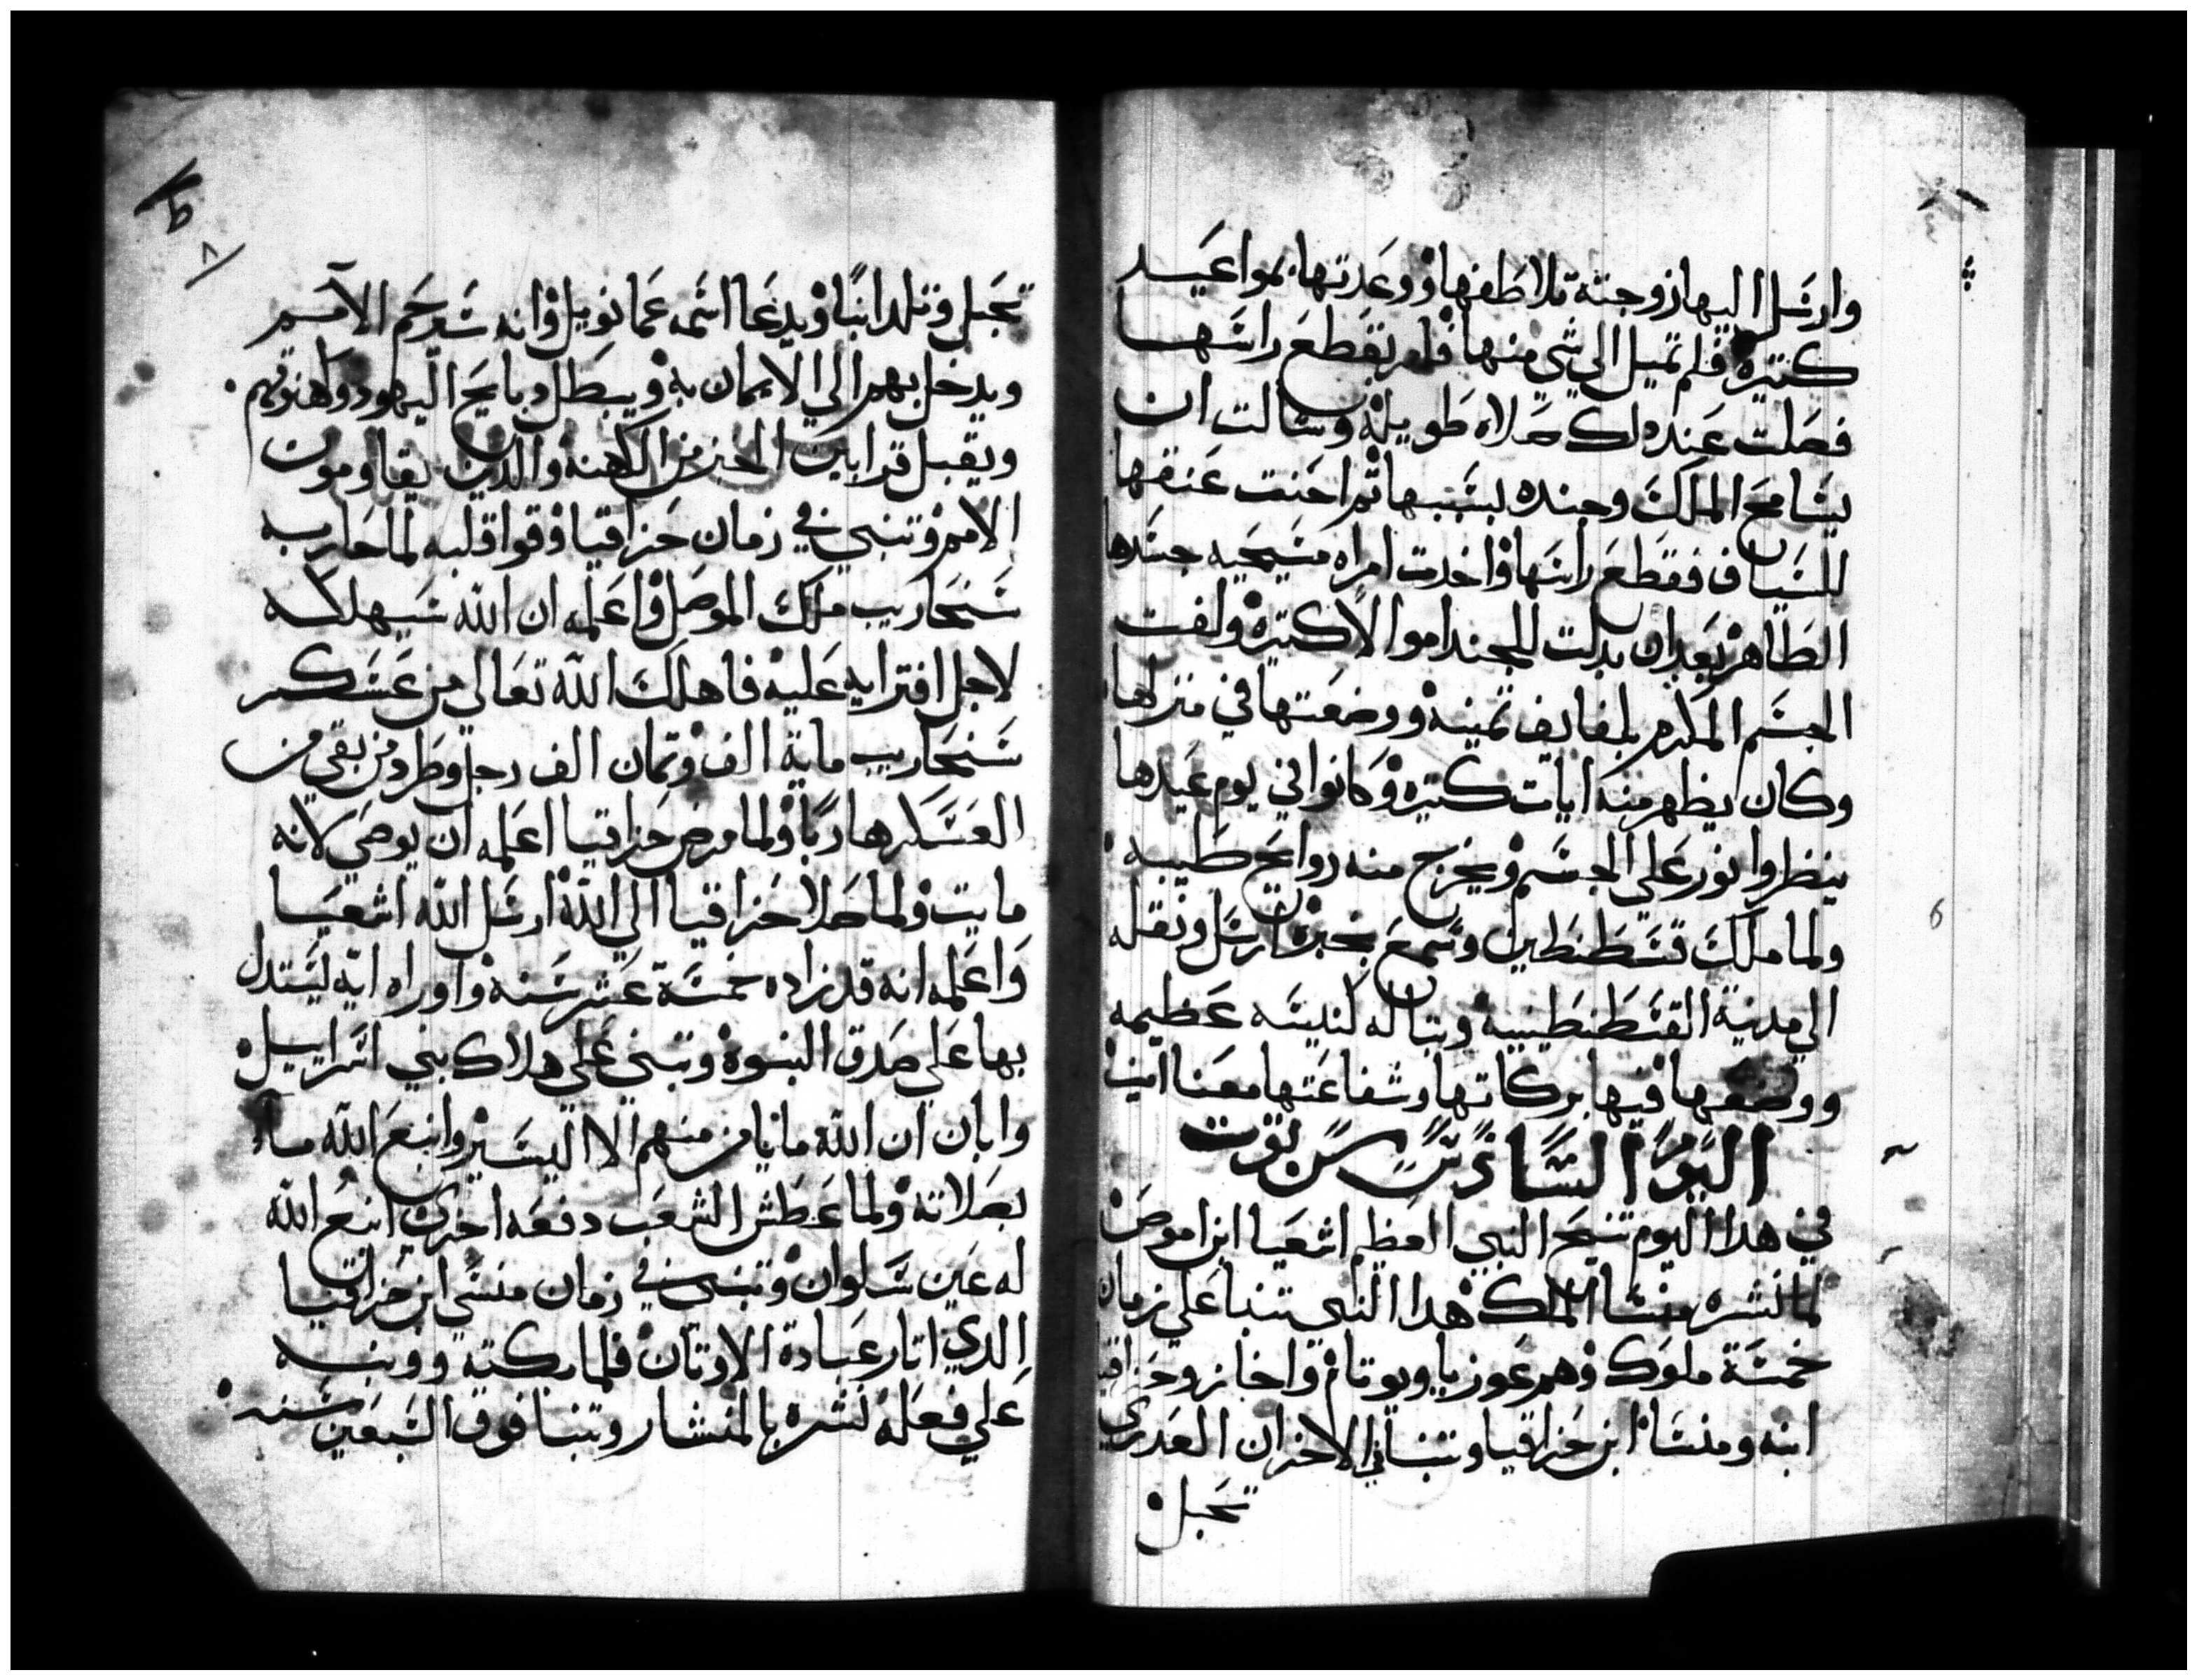 وارسل اليها زوجته تلاطفها ووعدتها بمواعيد
كتيره فلم تميل الي شي منها فامر بقطع راسها
فصلت عند دلك صلاه طويله وسالت ان
يسامح الملك وجنده بسببها تم احنت عنقها
للسياف فقطع راسها واخدت امراه مسيحيه جسدها
الطاهر بعد ان بدلت للجند اموالا كتيره ولفت
الجسم المكرم بلفايف تمينه ووضعتها في منزلها
وكان يظهر منه ايات كتيره وكانوا في يوم عيدها
ينظروا نور علي الجسم ويخرج منه روايح طيبه
ولما ملك قسطنطين وسمع بخبره ارسل ونقله
الي مدينة القسطنطينيه وبنا له كنيسه عظيمه
ووضعها فيها بركاتها وشفاعتها معنا امين
اليوم السادس من توت
في هدا اليوم تنيح النبي العظيم اشعيا ابن اموص
لما نشره منسا الملك هدا النبي تنبا علي زمان
خمسة ملوك وهم عوزيا ويوتام واخاز وحزاقيا
ابنه ومنسا ابن حزاقيا وتنبا في الاحزان العدري
تحبل
٨
تحبل وتلد ابنا ويدعا اسمه عمانويل وانه سيرحم الامم
ويدخل بهم الي الايمان به ويبطل دبايح اليهود وكهنوتهم
ويقبل قرابين الخبز من الكهنه والدين يقاومون
الامم وتنبي في زمان حزاقيا وقوا قلبه لما حاربه
سنحاريب ملك الموصل واعلمه ان الله سيهلكه
لاجل افترايه عليه فاهلك الله تعالي من عسكر
سنحاريب ماية الف وتمان الف رجل وطرد من بقي من
العسكر هاربا ولما مرض حزاقيا اعلمه ان يوصي لانه
مايت ولما صلا حزاقيا الي الله ارسل الله اشعيا
واعلمه انه قد زاده خمسة عشر سنه واوراه ايه ليستدل
بها علي صدق النبوه وتنبي علي هلاك بني اسراييل
وابان ان الله ما نيا من منهم الا اليسير وانبع الله ماء
بصلاته ولما عطش الشعب دفعه اخري انبع الله
له عين سلوان وتنبي في زمان منسي ابن حزاقيا
الدي اتار عبادة الاوتان فلما بكته ووبخه
علي فعله نشره بالمنشار وتنبا فوق السبعين سنه